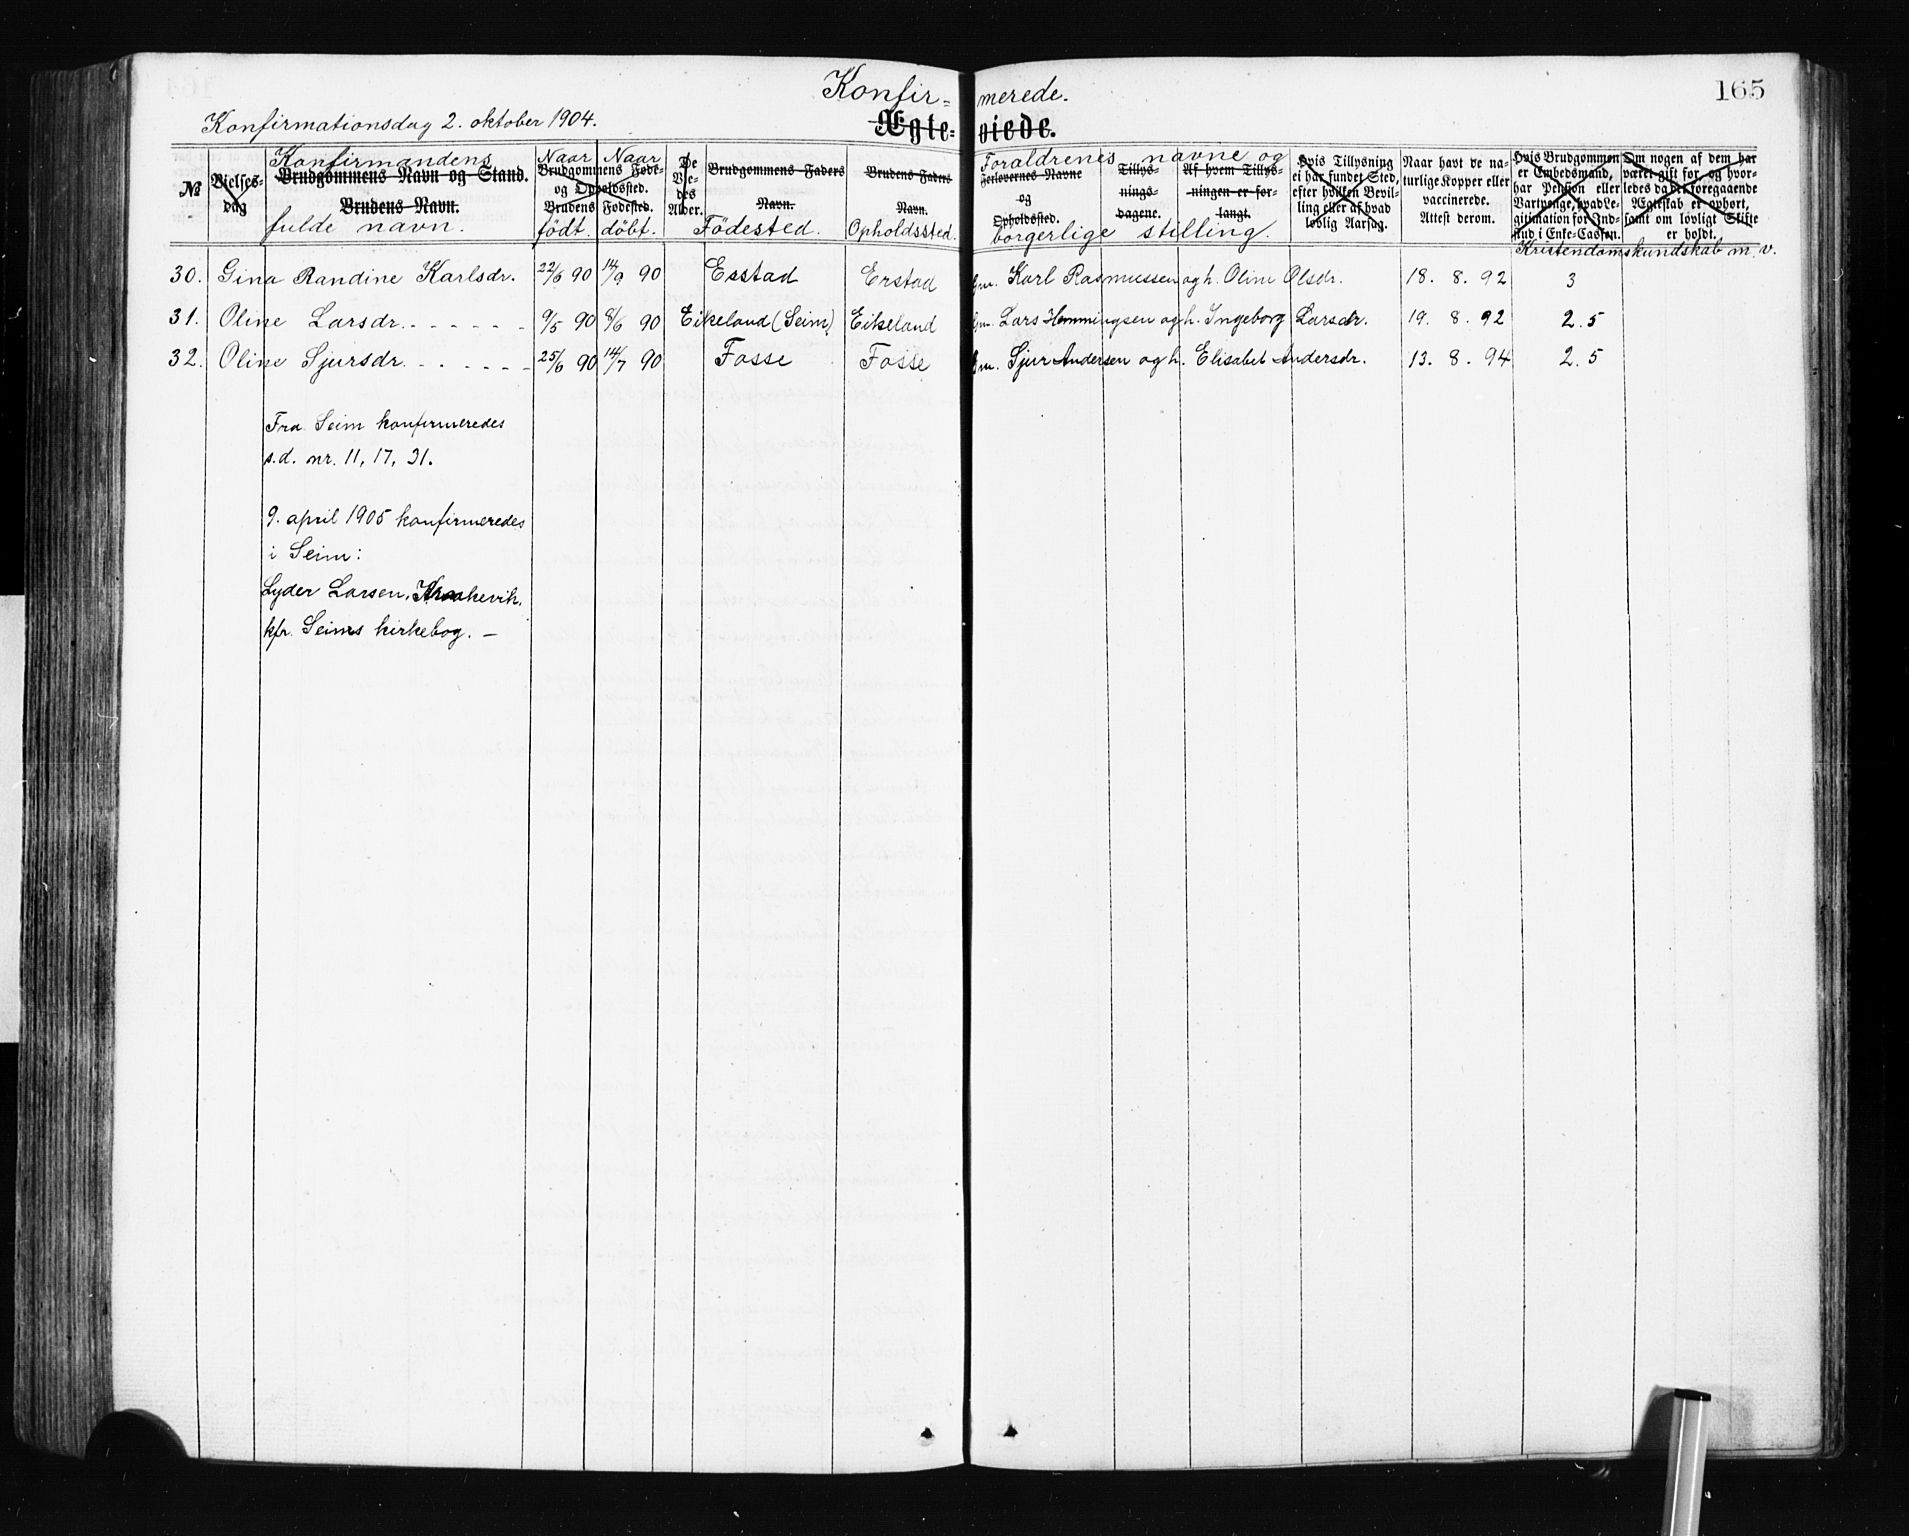 Konfir- merede.
165
Konfirmationsdag 2. oktober 1904.
Ægte- viede.
№
Vielses-
dag
Konfirmandens
Brudgommens Navn og Stand.
Brudens Navn.
fulde navn.
Naar Naar
Brudgommens Føde-
og Opholdssted.
Brudens Fødested.
födt. döbt.
De
Vie-
des
Alder.
Brudgommens Faders
Navn.
Födested.
Brudens Faders
Navn.
Opholdssted.
Foraldrenes navne og
Forlovernes Navne
og
Opholdssted.
borgerlige stilling.
Tillys-
nings-
dagene.
Af hvem Tillys-
ningen er for-
langt.
Hvis Tillysning
ei har fundet Sted,
efter hvilken Bevil-
ling eller af hvad
lovlig Aarsag.
Naar havt de na-
turlige Kopper eller
vaccinerede.
Attest derom.
Hvis Brudgommen
er Embedsmand,
har Pension eller
Vartpenge, hvad Le-
gitimation for Ind-
skud i Enke-Cassen.
Om nogen af dem har
været gift før, og hvor-
ledes da det foregaaende
Ægteskab er ophørt,
samt om lovligt Skifte
er holdt.
Kristendomskundskab m. v.
30. Gina Randine Karlsdr. 22/8 90 14/9 90 Esstad Erstad Gm. Karl Rasmussen og h. Oline Olsdr. 18. 8. 92 3
31. Oline Larsdr. - - - - - - 9/5 90 8/6 90 Eikeland (Seim) Eikeland Gm. Lars Hemmingsen og h. Ingeborg Larsdr. 19. 8. 92 2.5
32. Oline Sjursdr. - - - - - - 25/6 90 14/7 90 Fosse Fosse Gm. Sjur Andersen og h. Elisabet Andersdr. 13. 8. 94 2.5
Fra Seim konfirmeredes
s.d. nr. 11, 17, 31.
9. april 1905 konfirmeredes
i Seim:
Lyder Larsen, Kraakevik,
kfr. Seims kirkebog. —